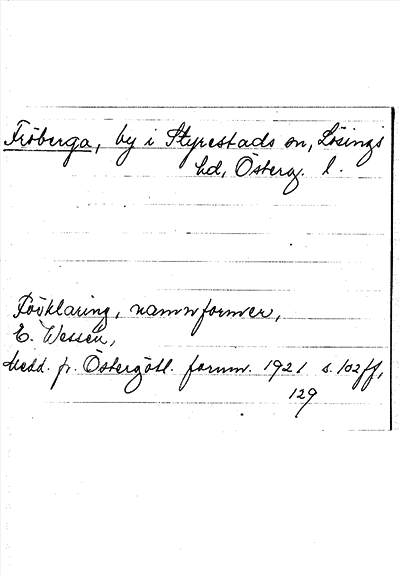 Fröberga, by i Styrestads sn, Lösings
hd, Österg. l.
Förklaring, namnformer,
E. Wessén,
Medd. fr. Östergötl. fornm. 1921 s. 102 ff,
129